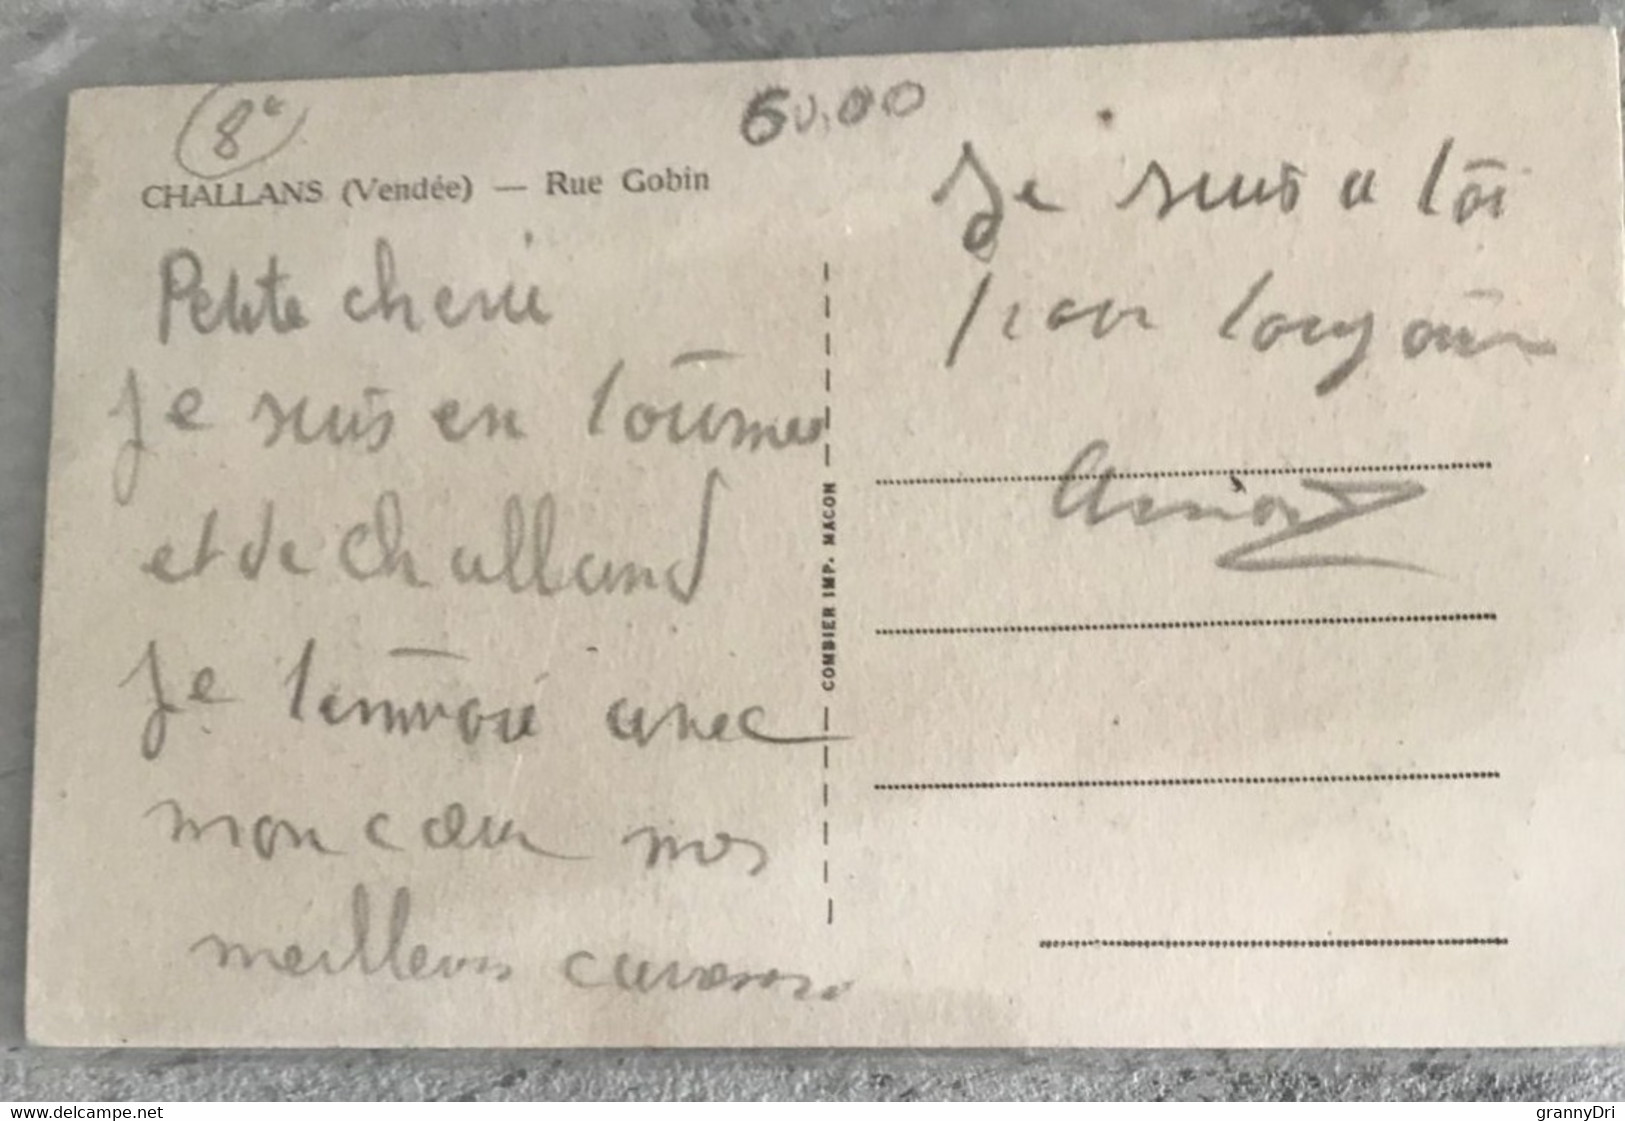 8€
60.00
CHALLANS (Vendée) — Rue Gobin
Petite cherie
Je suis en tournee
et de challand
Je tenvoie avec
mon cœur mes
meilleurs caresses
COMBIER IMP. MACON
Je suis a toi
pour toujours
delcampe.net
grannyDri